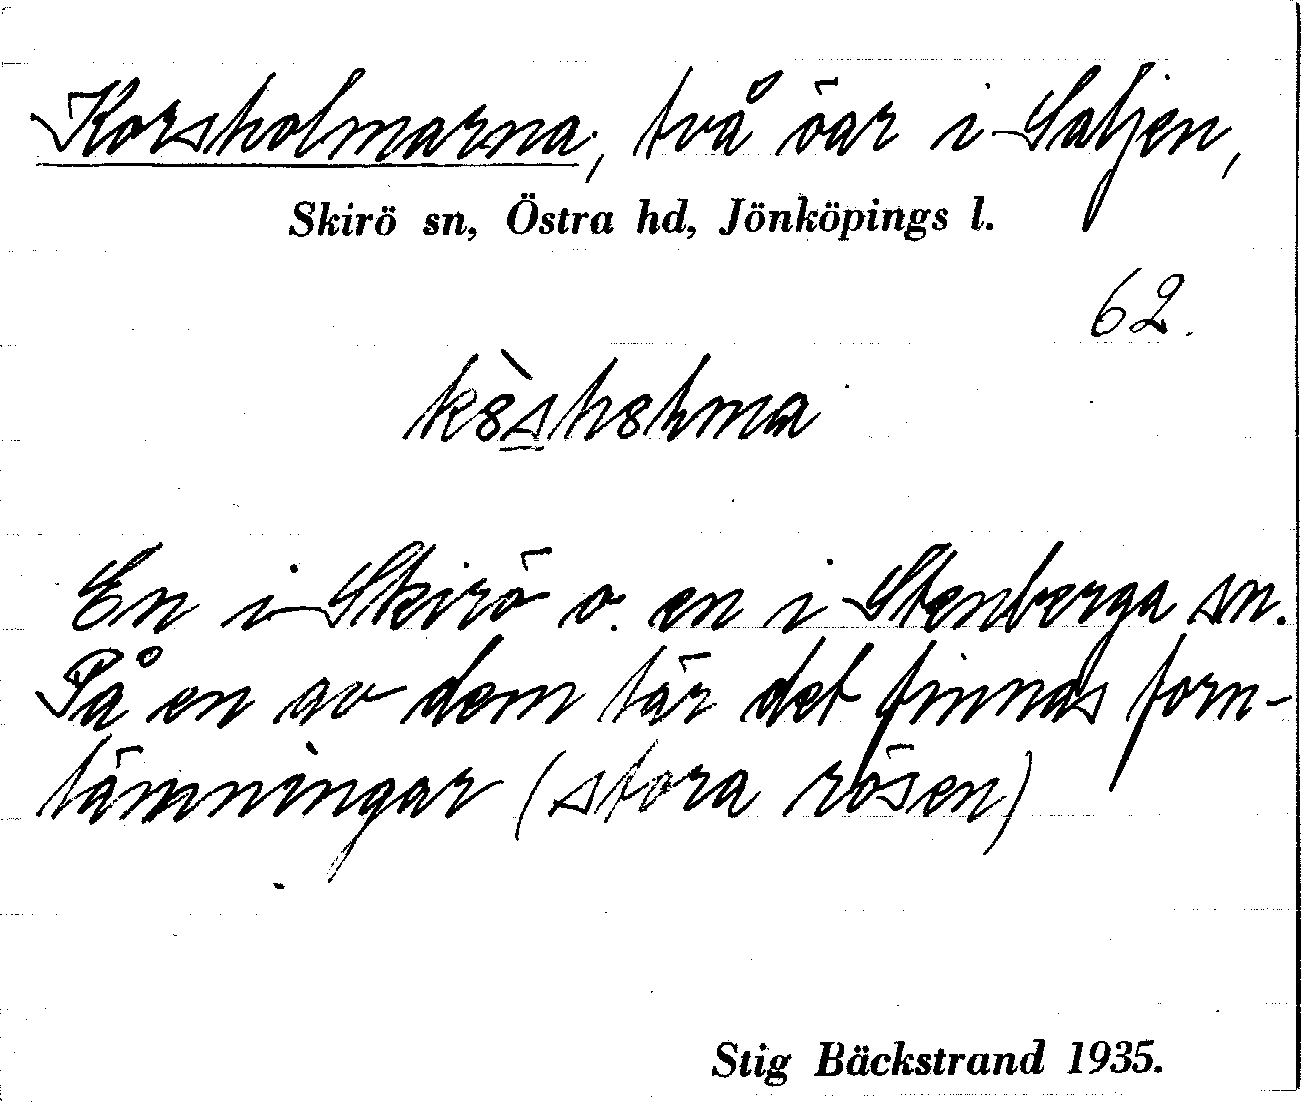 Korsholmarna, två öar i Saljen,
Skirö sn, Östra hd, Jönköpings l.
62.
kòsholma
En i Skirö o. en i Stenberga sn.
På en av dem lär det finnas forn-
lämningar (stora rösen)
Stig Bäckstrand 1935.